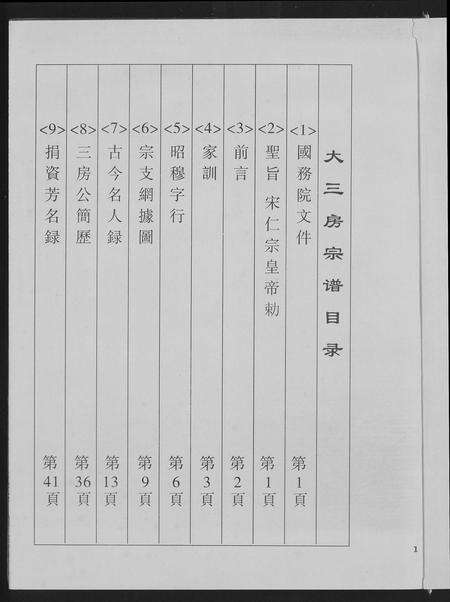 大三房宗谱目录
<1>國務院文件 第1頁
<2>聖旨 宋仁宗皇帝勅 第1頁
<3>前言 第2頁
<4>家訓 第3頁
<5>昭穆字行 第6頁
<6>宗支網據圖 第9頁
<7>古今名人録 第13頁
<8>三房公簡歷 第36頁
<9>捐資芳名録 第41頁
1